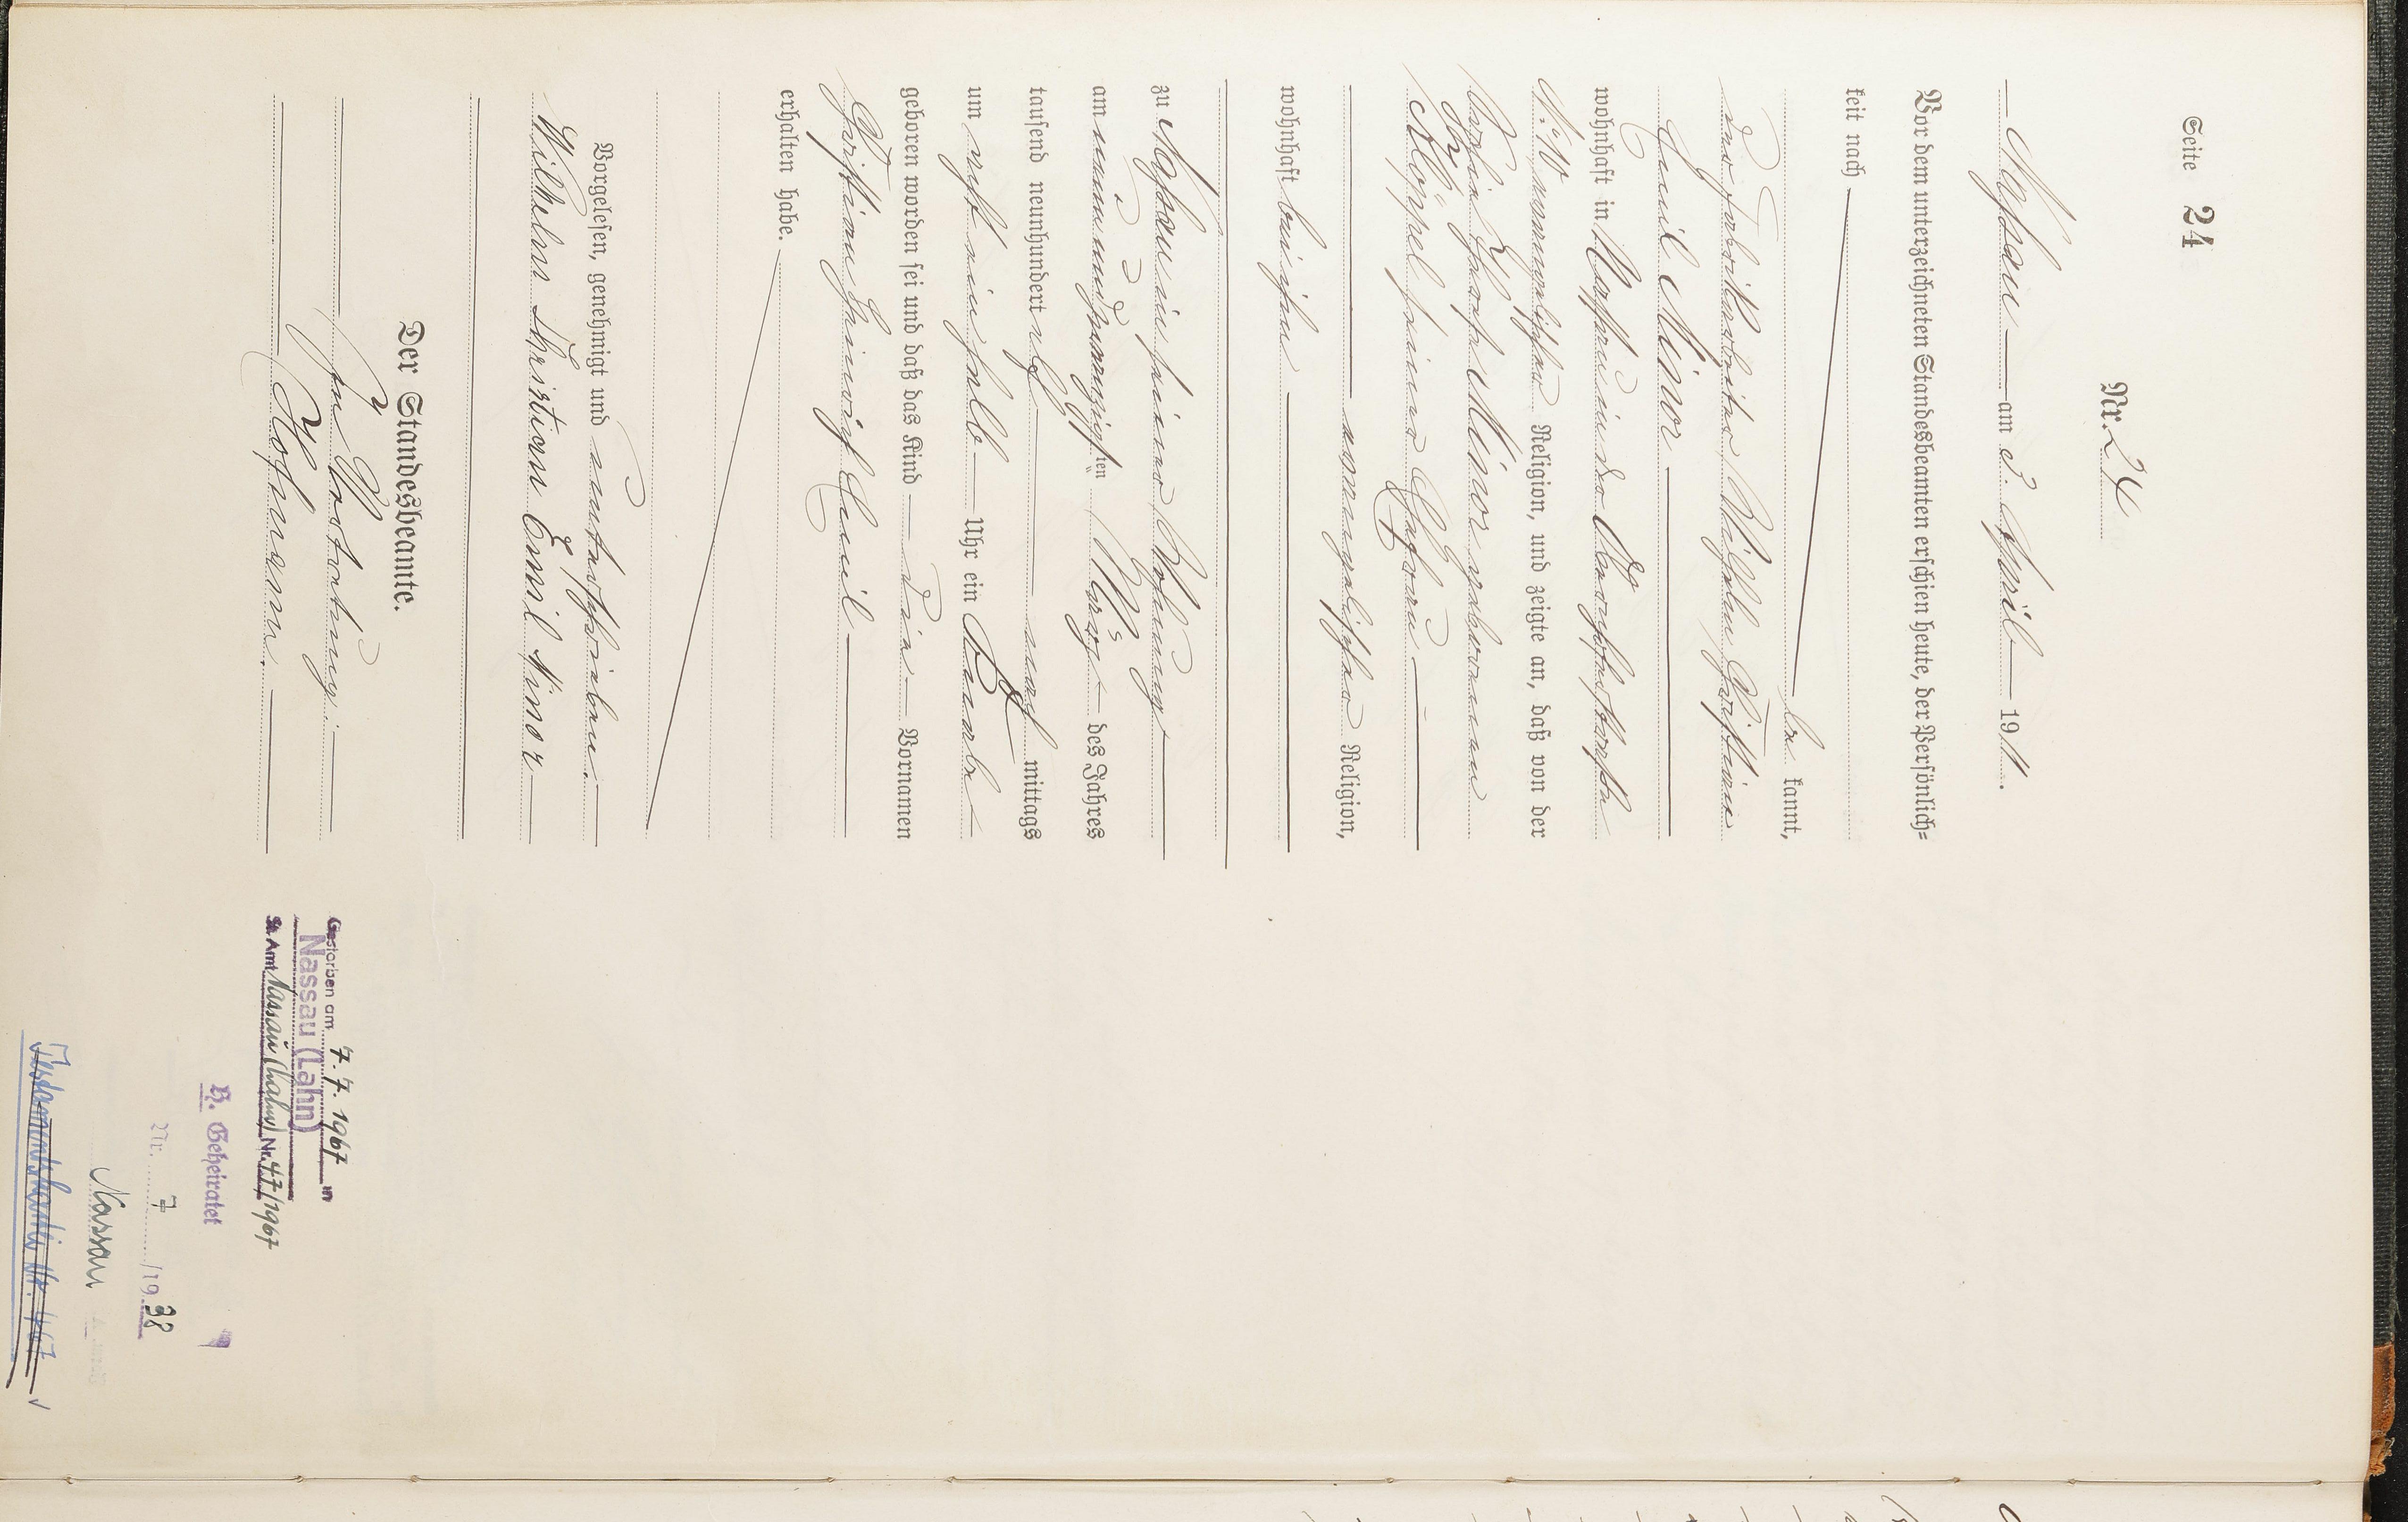 Seite 24
Nr. 24
Nassau am 3. April 1911.
Vor dem unterzeichneten Standesbeamten erschien heute, der Persönlich-
keit nach
be kannt,
der Fabrikarbeiter Wilhelm Christian
Emil Minor
wohnhaft in Nassau in der
Religion, und zeigte an, daß von der
Minor geborenen
Klöppel seiner Ehefrau
evangelischer Religion,
wohnhaft bei ihm
zu Nassau in seiner Wohnung
am neunundzwanzigsten März des Jahres
tausend neunhundert elf nach mittags
um acht ein halb Uhr ein Knabe
geboren worden sei und daß das Kind die Vornamen
Christian Heinrich Emil
erhalten habe.
Vorgelesen, genehmigt und unterschrieben.
Wilhelm Christian Emil Minor
Der Standesbeamte.
In Vertretung:
Hofmann.
Gestorben am 7. 7. 1967 in
Nassau (Lahn)
St. Amt Nassau (Lahn) Nr. 47/1967
Geheiratet
Nr. 7/1938
Nassau